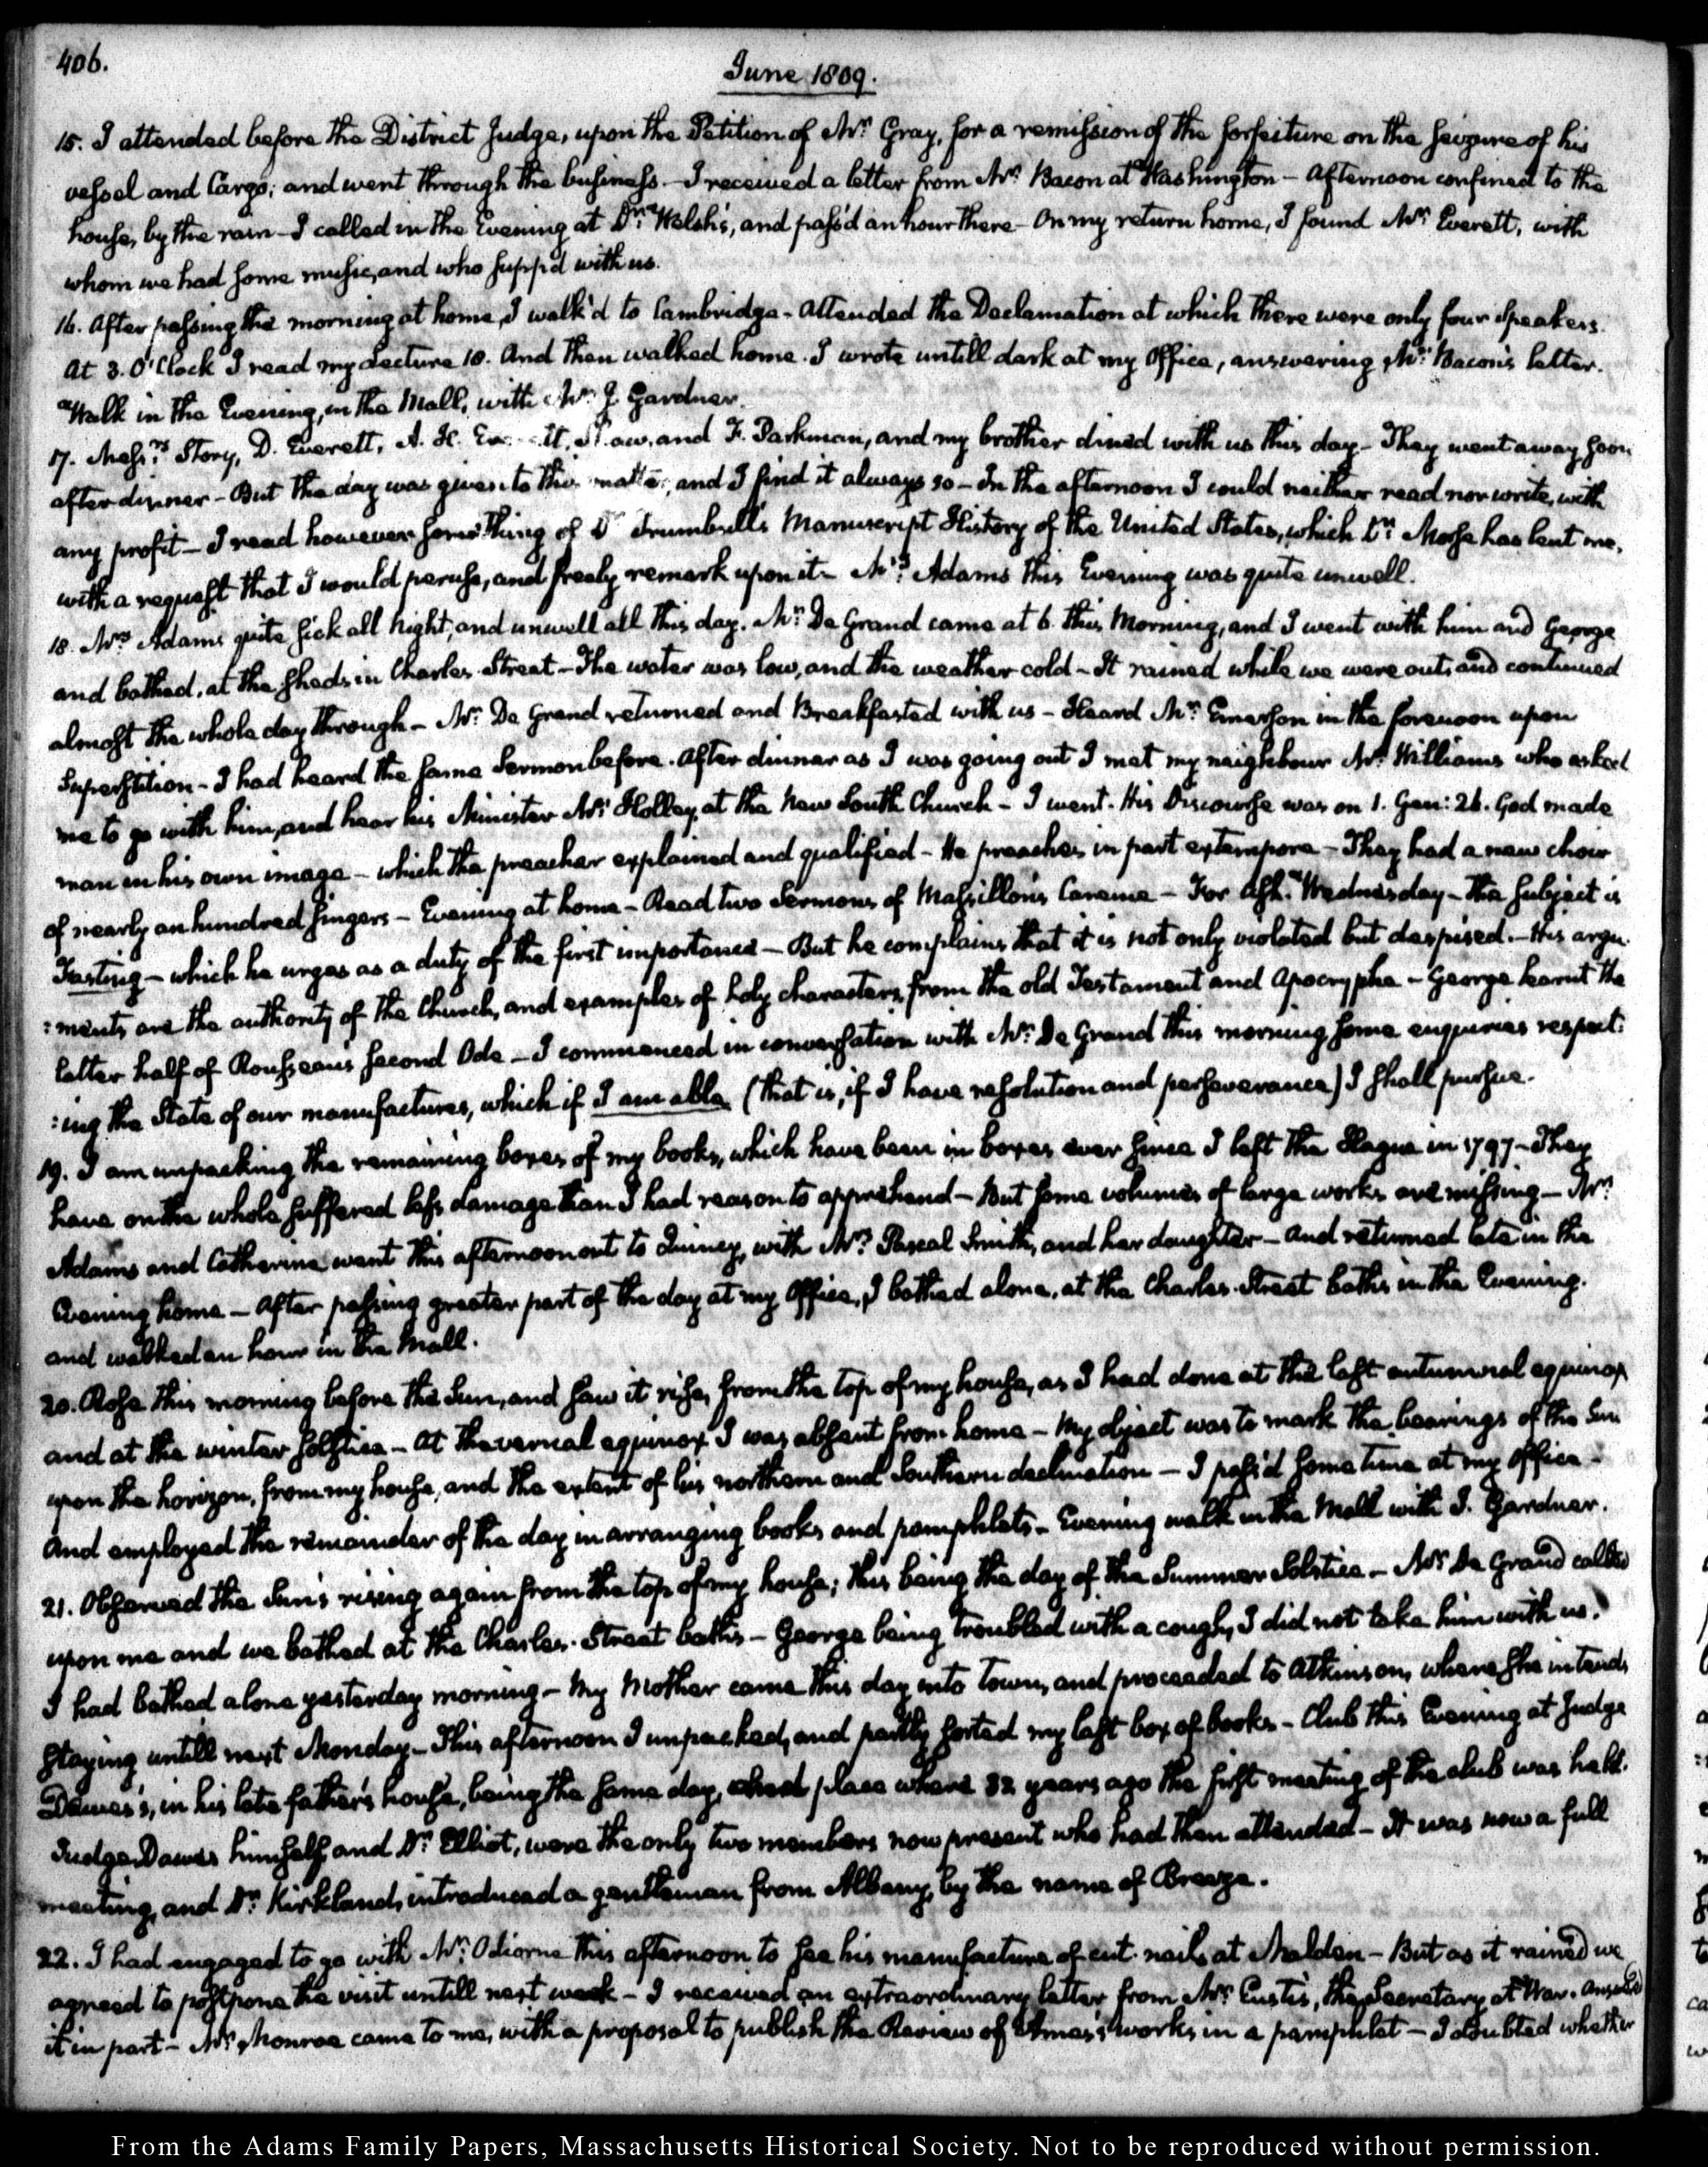 406.
June 1809.
15. I attended before the District Judge, upon the Petition of Mr. Gray, for a remission of the forfeiture on the seizure of his
vessel and Cargo; and went through the business. — I received a letter from Mr. Bacon at Washington — Afternoon confined to the
house, by the rain — I called in the Evening at Dr. Welsh's, and pass'd an hour there — On my return home, I found Mr. Everett, with
whom we had some music, and who supp'd with us.
16. After passing the morning at home, I walk'd to Cambridge — Attended the Declamation at which there were only four speakers.
At 3. O'Clock I read my Lecture 10. And then walked home. I wrote untill dark at my Office, answering Mr. Bacon's letter.
Walk in the Evening, in the Mall, with Mr. J. Gardner.
17. Messrs. Story, D. Everett, A. H. Everett, Shaw, and F. Parkman, and my brother dined with us this day — They went away soon
after dinner — But the day was given to this matter, and I find it always so — In the afternoon I could neither read nor write, with
any profit — I read however something of Dr. Trumbull's Manuscript History of the United States, which Dr. Morse has lent me,
with a request that I would peruse, and freely remark upon it — Mrs. Adams this Evening was quite unwell.
18. Mrs. Adams quite sick all Night, and unwell all this day. Mr. De Grand came at 6. this Morning, and I went with him and George
and bathed, at the sheds in Charles Street — The water was low, and the weather cold — It rained while we were out, and continued
almost the whole day through — Mr. De Grand returned and Breakfasted with us — Heard Mr. Emerson in the forenoon upon
Superstition — I had heard the same Sermon before. After dinner as I was going out I met my neighbour Mr. Williams who asked
me to go with him, and hear his Minister Mr. Holley, at the New South Church — I went. His Discourse was on 1. Gen: 26. God made
man in his own image — which the preacher explained and qualified — He preaches in part extempore — They had a new choir
of nearly an hundred singers — Evening at home — Read two Sermons of Massillon's Careme — For Ash-Wednesday — The subject is
Fasting — which he urges as a duty of the first importance — But he complains that it is not only violated but despised. — His argu-
:ments are the authority of the Church, and examples of holy characters, from the old Testament and Apocrypha — George learnt the
latter half of Rousseau's second Ode — I commenced in conversation with Mr. De Grand this morning some enquiries respect:
:ing the State of our manufactures, which if I am able (that is, if I have resolution and perseverance) I shall pursue.
19. I am unpacking the remaining boxes of my books, which have been in boxes ever since I left the Hague in 1797 — They
have on the whole suffered less damage than I had reason to apprehend — But some volumes of large works are missing — Mrs.
Adams and Catherine went this afternoon out to Quincy, with Mrs. Pascal Smith, and her daughter — And returned late in the
Evening home — After passing greater part of the day at my Office, I bathed alone, at the Charles-Street baths in the Evening.
and walked an hour in the Mall.
20. Rose this morning before the Sun, and saw it rise, from the top of my house, as I had done at the last autumnal equinox
and at the winter solstice — At the vernal equinox I was absent from home — My object was to mark the bearings of the Sun
upon the horizon, from my house, and the extent of his northern and Southern declination — I pass'd some time at my office —
And employed the remainder of the day in arranging books and pamphlets — Evening walk in the Mall with J. Gardner.
21. Observed the Sun's rising again from the top of my house; this being the day of the Summer Solstice — Mr. De Grand called
upon me and we bathed at the Charles-Street baths — George being troubled with a cough, I did not take him with us.
I had bathed alone yesterday morning — My Mother came this day into town, and proceeded to Atkinson, where she intends
staying untill next Monday — This afternoon I unpacked, and partly sorted my last box of books — Club this Evening at Judge
Dawes's, in his late father's house, being the same day, and place where 32 years ago the first meeting of the club was held.
Judge Dawes himself and Dr. Elliot, were the only two members now present who had then attended — It was now a full
meeting, and Dr. Kirkland, introduced a gentleman from Albany, by the name of Breeze.
22. I had engaged to go with Mr. Odiorne this afternoon to see his manufacture of cut nails at Malden — But as it rained we
agreed to postpone the visit untill next week — I received an extraordinary letter from Mr. Eustis, the Secretary at War.
it in part — Mr. Monroe came to me, with a proposal to publish the Review of Ames's works in a pamphlet — I doubted whether
From the Adams Family Papers, Massachusetts Historical Society. Not to be reproduced without permission.